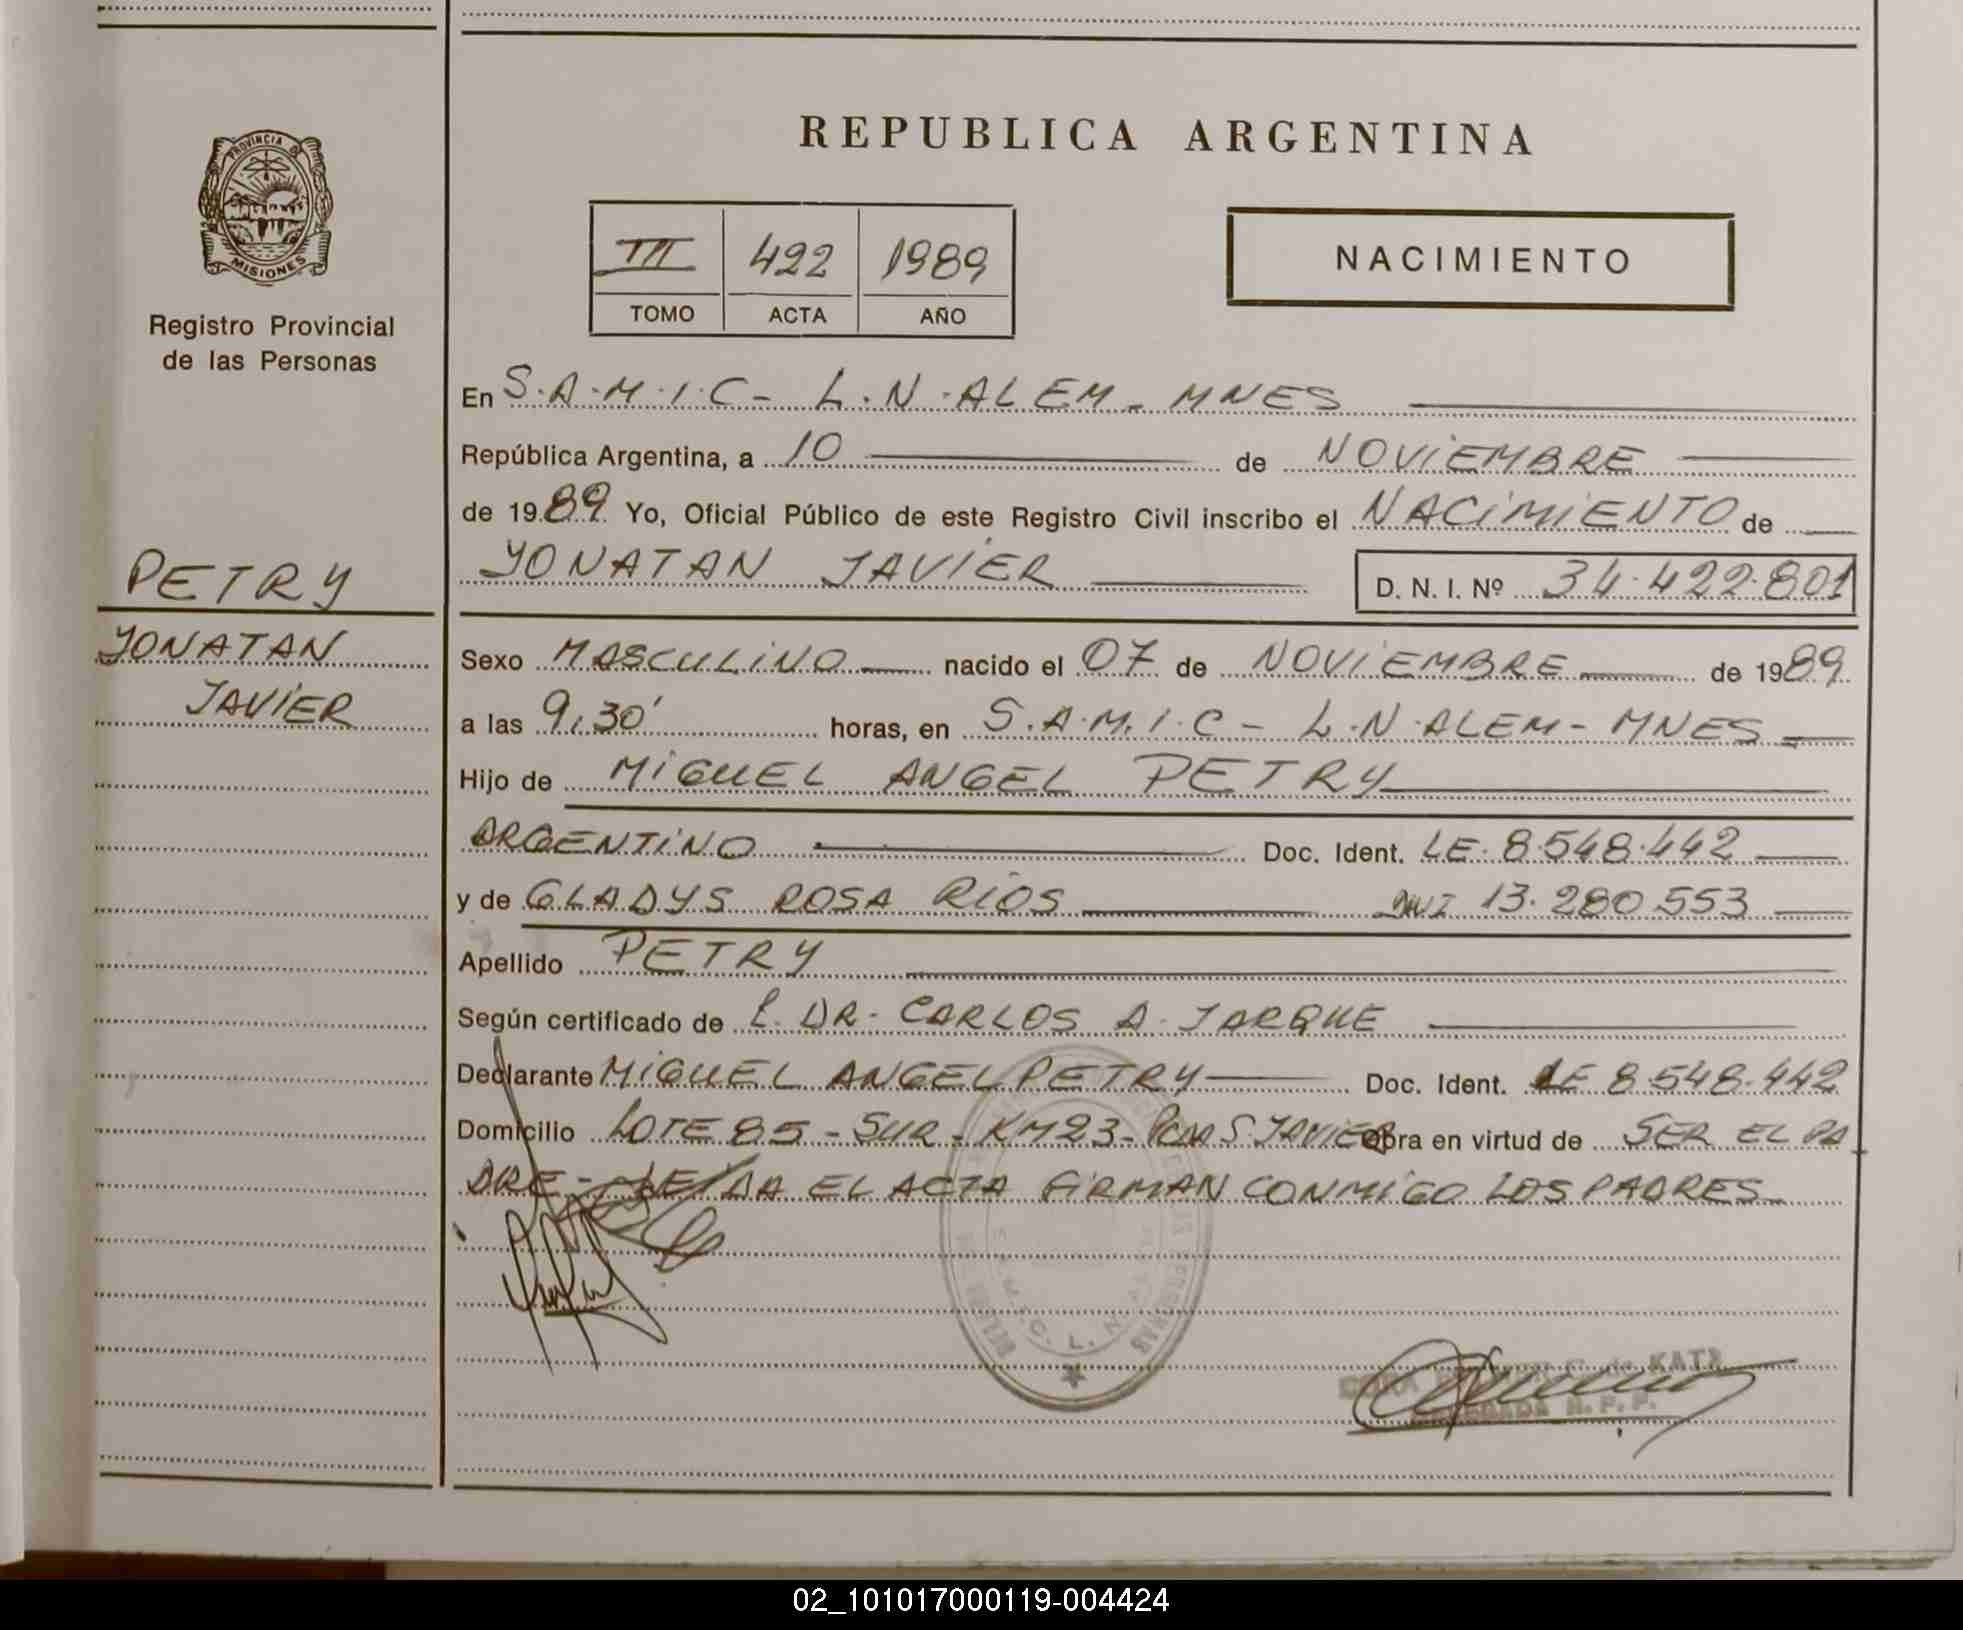 PROVINCIA DE
MISIONES
Registro Provincial
de las Personas
PETRY
YONATAN
JAVIER
REPUBLICA ARGENTINA
III 422 1989
TOMO ACTA AÑO
NACIMIENTO
En S.A.M.I.C - L.N.ALEM - MNES
República Argentina, a 10 de NOVIEMBRE
de 1989 Yo, Oficial Público de este Registro Civil inscribo el NACIMIENTO de
YONATAN JAVIER D. N. I. Nº 34.422.801
Sexo MASCULINO nacido el 07 de NOVIEMBRE de 1989
a las 9,30' horas, en S.A.M.I.C - L.N ALEM - MNES
Hijo de MIGUEL ANGEL PETRY
ARGENTINO Doc. Ident. LE. 8.548.442
y de GLADYS ROSA RIOS DNI 13.280.553
Apellido PETRY
Según certificado de L. DR. CARLOS A. JARQUE
Declarante MIGUEL ANGEL PETRY Doc. Ident. LE 8.548.442
Domicilio LOTE 85 - SUR - KM 23 - S. JAVIER Obra en virtud de SER EL PA
DRE - LEIDA EL ACTA FIRMAN CONMIGO LOS PADRES
S.A.M.I.C. L.N.
de KATZ
DELEGADA R. P. P.
02_101017000119-004424